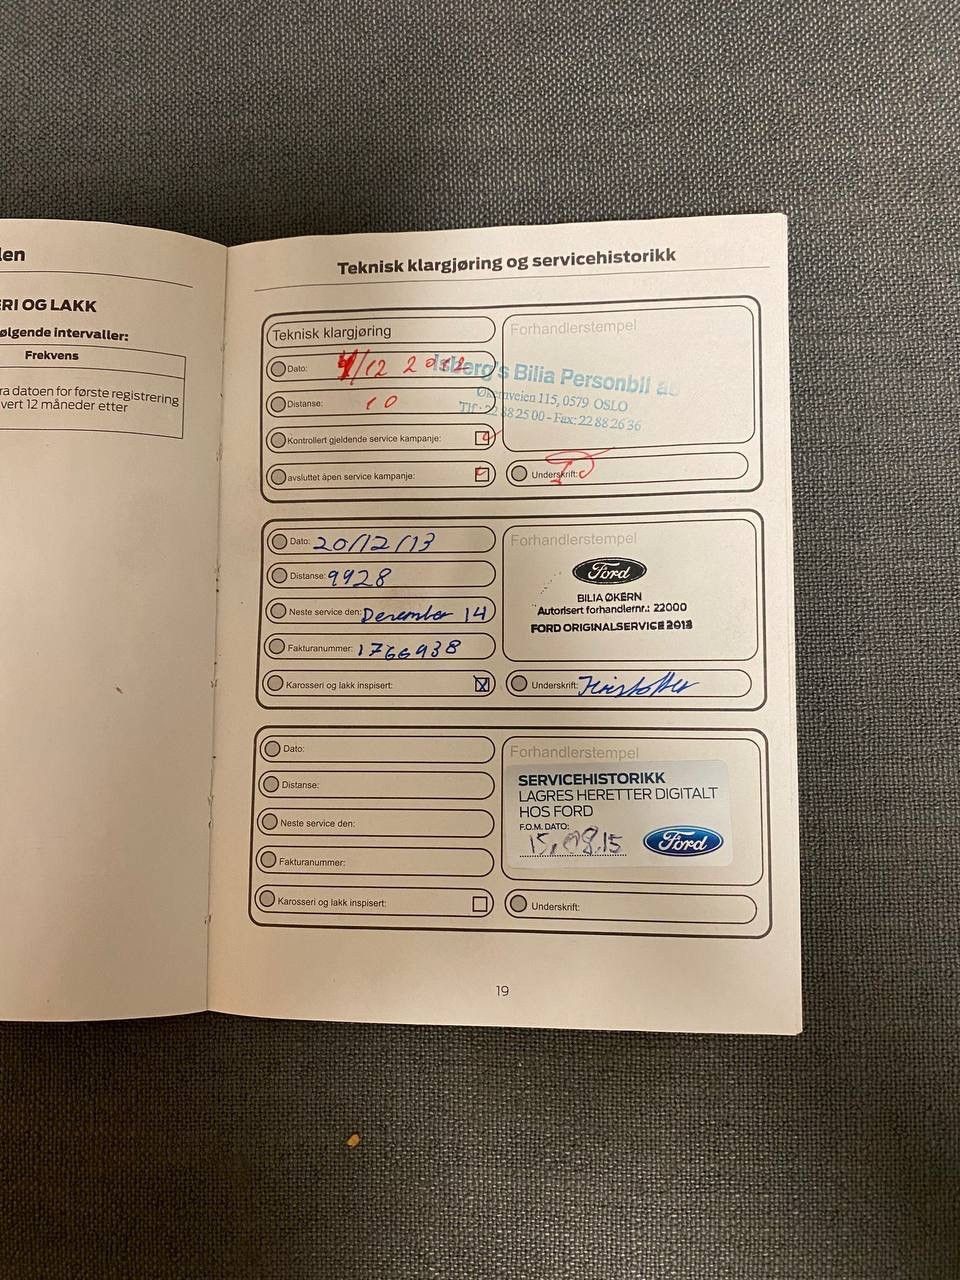 len
Teknisk klargjøring og servicehistorikk
RI OG LAKK
ølgende intervaller:
Frekvens
ra datoen for første registrering
vert 12 måneder etter
Teknisk klargjøring
Forhandlerstempel
Dato: /12 2012
Isberg's Bilia Personbil as
Økernveien 115, 0579 OSLO
Tlf: 22 88 25 00 - Fax: 22 88 26 36
Distanse: 10
Kontrollert gjeldende service kampanje:
avsluttet åpen service kampanje:
Underskrift:
Dato: 20/12/13
Forhandlerstempel
Ford
BILIA ØKERN
Autorisert forhandlernr.: 22000
FORD ORIGINALSERVICE 2013
Distanse: 9928
Neste service den: Desember 14
Fakturanummer: 1766938
Karosseri og lakk inspisert: X
Underskrift:
Dato:
Forhandlerstempel
SERVICEHISTORIKK
LAGRES HERETTER DIGITALT
HOS FORD
F.O.M. DATO:
15.09.15
Ford
Distanse:
Neste service den:
Fakturanummer:
Karosseri og lakk inspisert:
Underskrift:
19